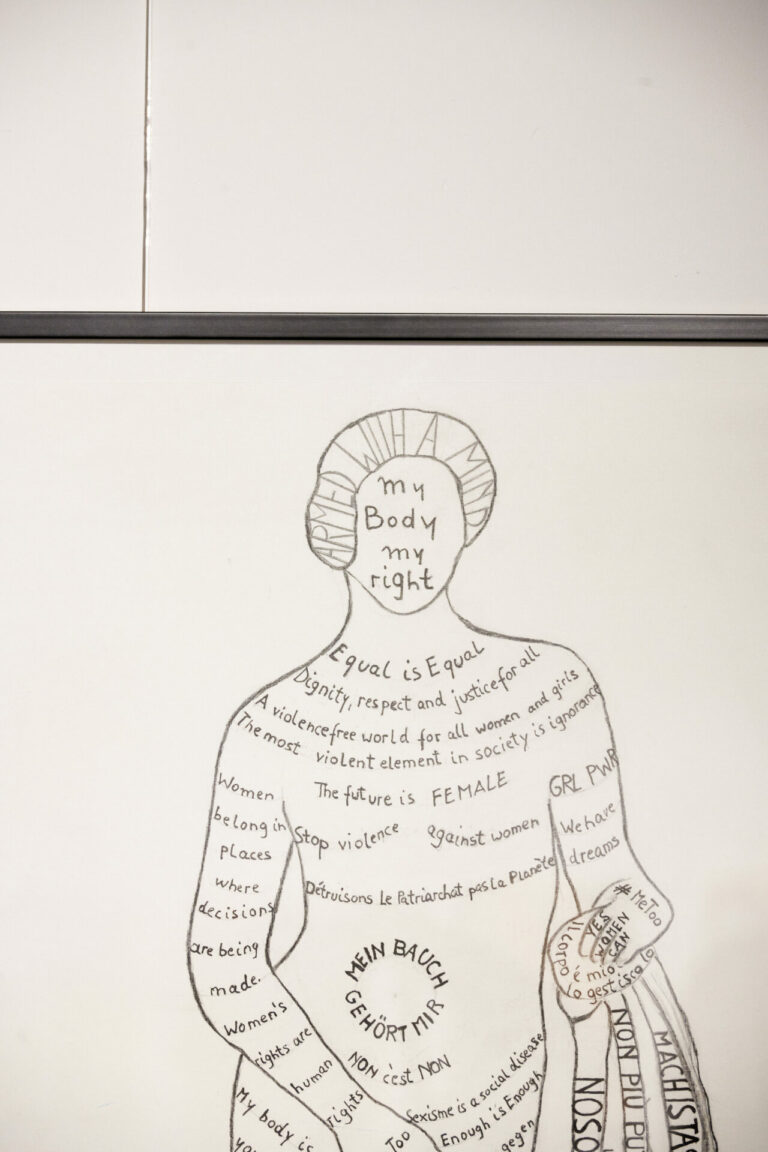 ARMED WITH A MIND
my
Body
my
right
Equal is Equal
Dignity, respect and justice for all
A violence free world for all women and girls
The most violent element in society is ignorance
The future is FEMALE
GRL PWR
Women
belong in
Places
where
decisions
are being
made.
Stop violence against women
We have
dreams
Détruisons Le Patriarchat pas La Planète
# MeToo
YES
WOMEN
CAN
Il corpo
é mio
lo gestisco io
MEIN BAUCH
GEHÖRT MIR
NON c'est NON
Women's
rights are
human
rights
My body is
Sexisme is a social disease
Enough is Enough
gegen
Too
NOSO
NON PIÙ PU
MACHISTA